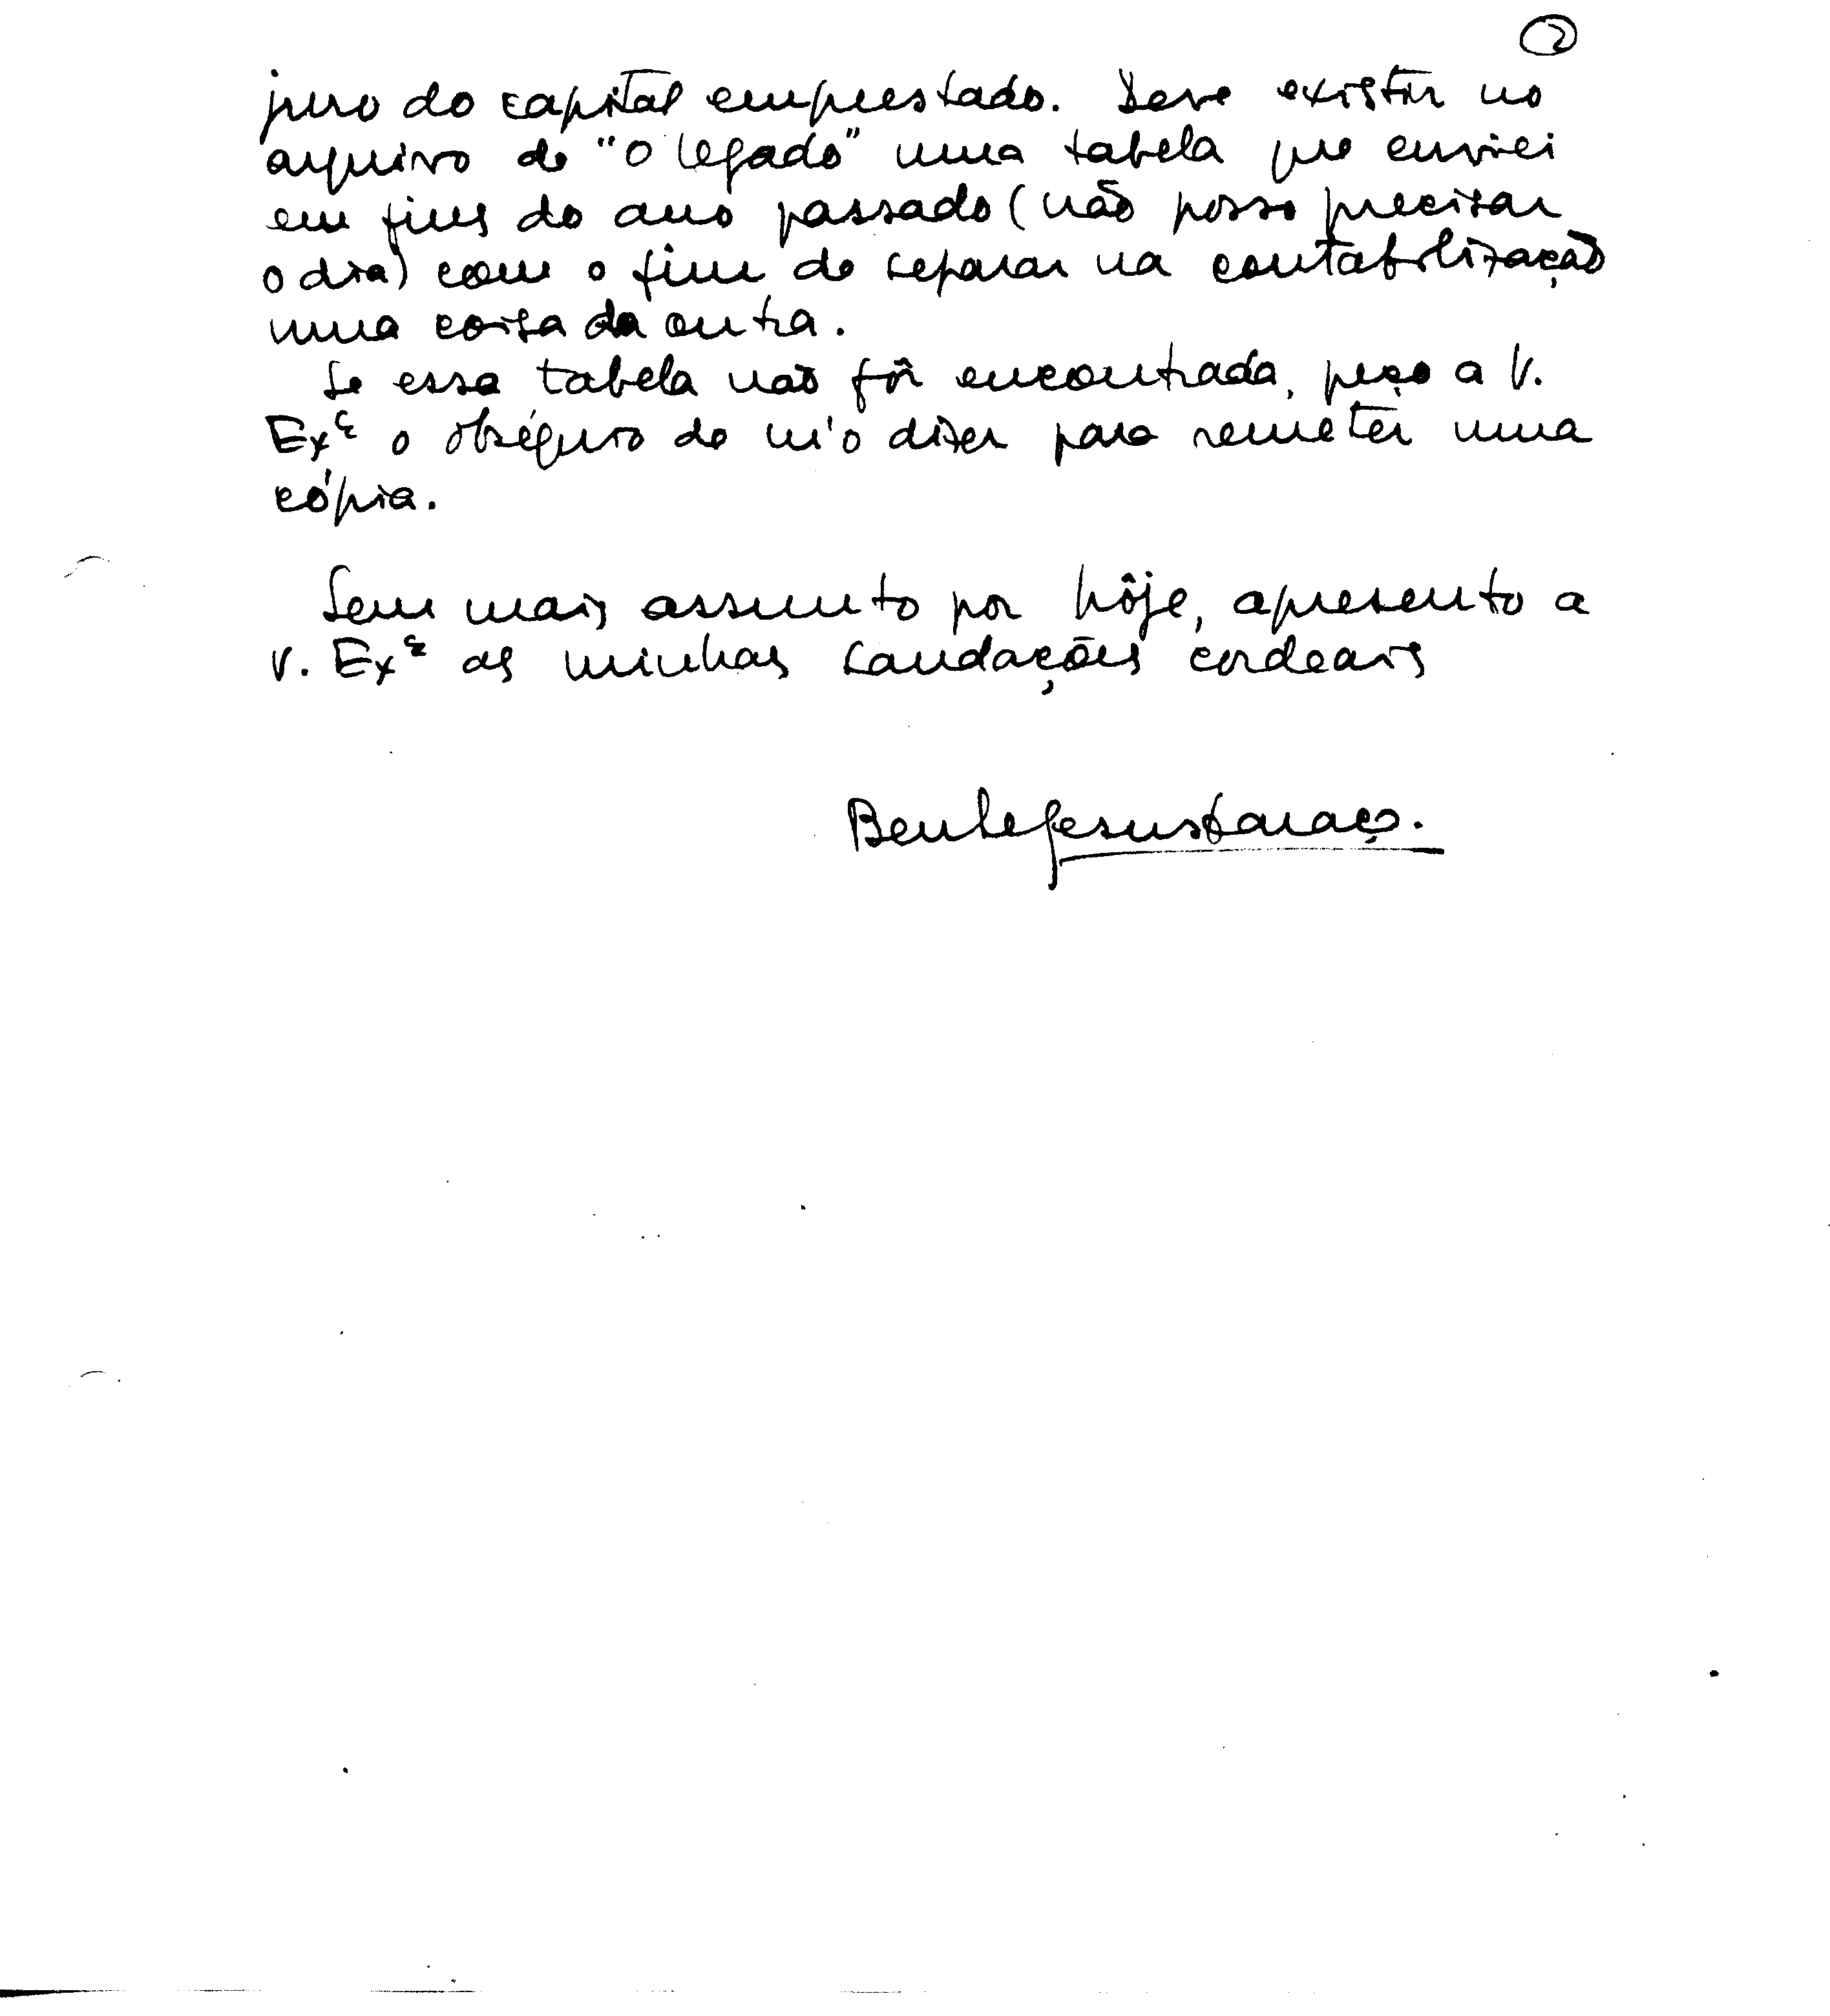 2
juro do capital emprestado. Deve existir no
arquivo de "O Legado" uma tabela que enviei
em fins do ano passado (não posso precisar
o dia) com o fim de separar na contabilização
uma coisa da outra.
Se essa tabela não fôr encontrada, peço a V.
Exª o obséquio de m'o dizer para remeter uma
cópia.
Sem mais assunto por hôje, apresento a
V. Exª as minhas saudações cordeais
Bento de Jesus Caraça.